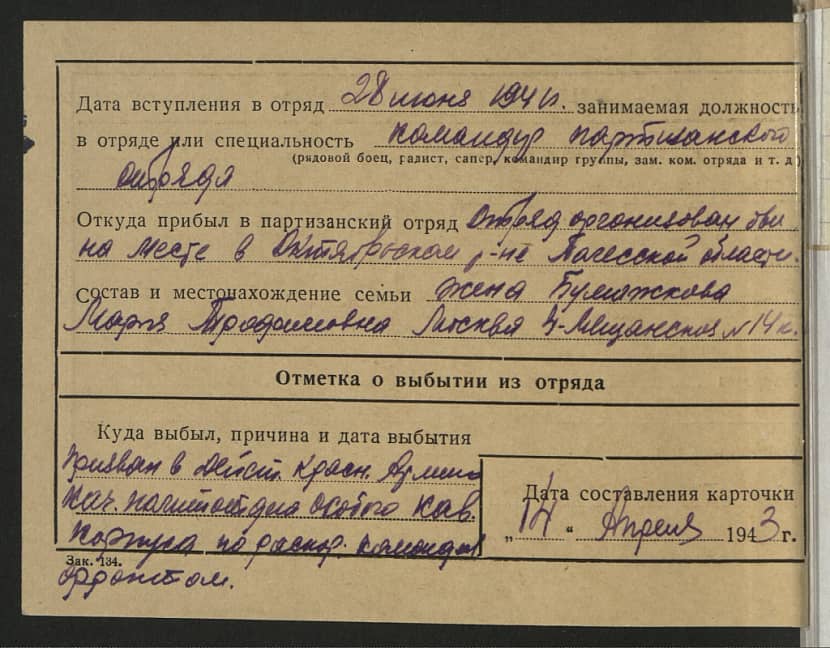 Дата вступления в отряд 28 июня 1941 г. занимаемая должность
в отряде или специальность командир партизанского
(рядовой боец, радист, сапер, командир группы, зам. ком. отряда и т. д.)
отряда
Откуда прибыл в партизанский отряд Отряд организован
на месте в Октябрьском р-не Полесской области.
Состав и местонахождение семьи жена Бумажкова
Мария Трофимовна Москва Мещанская № 14 к.
Отметка о выбытии из отряда
Куда выбыл, причина и дата выбытия
призван в дейст. Красн. Армию
нач. политотдела особого кав.
корпуса по распор. команд.
фронтом.
Дата составления карточки
„14“ Апреля 1943 г.
Зак. 134.